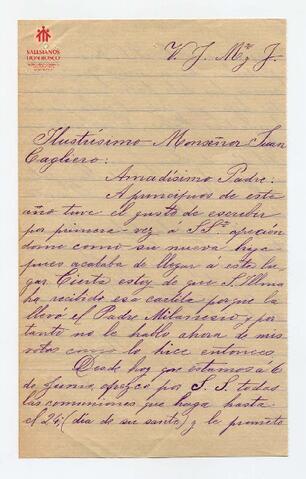 SALESIANOS
DON BOSCO
V. J. Mª y J.
Ilustrísimo Monseñor Juan
Cagliero:
Amadísimo Padre:
A principios de este
año tuve el gusto de escribir
por primera vez a SSª
dome como su nueva hija
pues acababa de llegar á este lu
gar Cierta estoy de que S. Ilma
ha recibido esa cartita porque la
llevó el Padre Milanesio y por
tanto no le hablo ahora de mis
notas como lo hice entonces.
Desde hoy que estamos á 6
de Junio ofrezco por S. S. todas
las comuniones que haga hasta
el 24, (dia de su santo) y le prometo